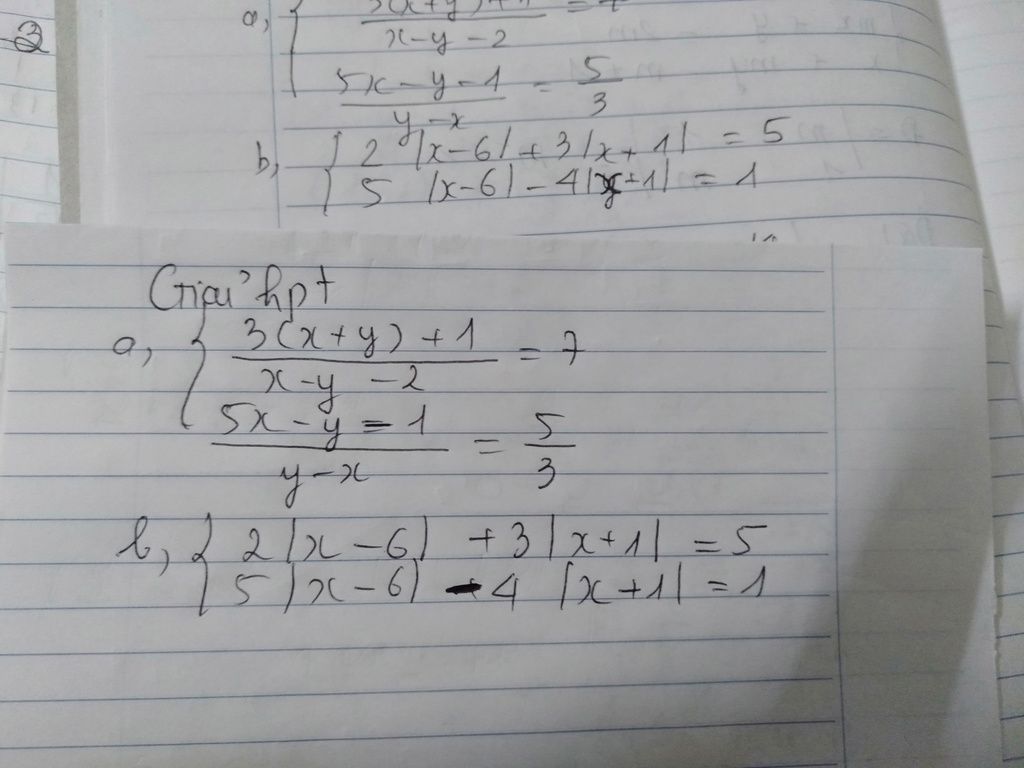 3(x+y)+1 = 7
a, {
x-y-2
5x-y-1 = 5
y-x 3
b, { 2 |x-6| + 3|x+1| = 5
5 |x-6| - 4|x+1| = 1
Giải hpt
a, { 3(x+y)+1 = 7
x-y-2
5x-y=1 = 5
y-x 3
b, { 2|x-6| +3|x+1| =5
5|x-6| -4 |x+1| =1